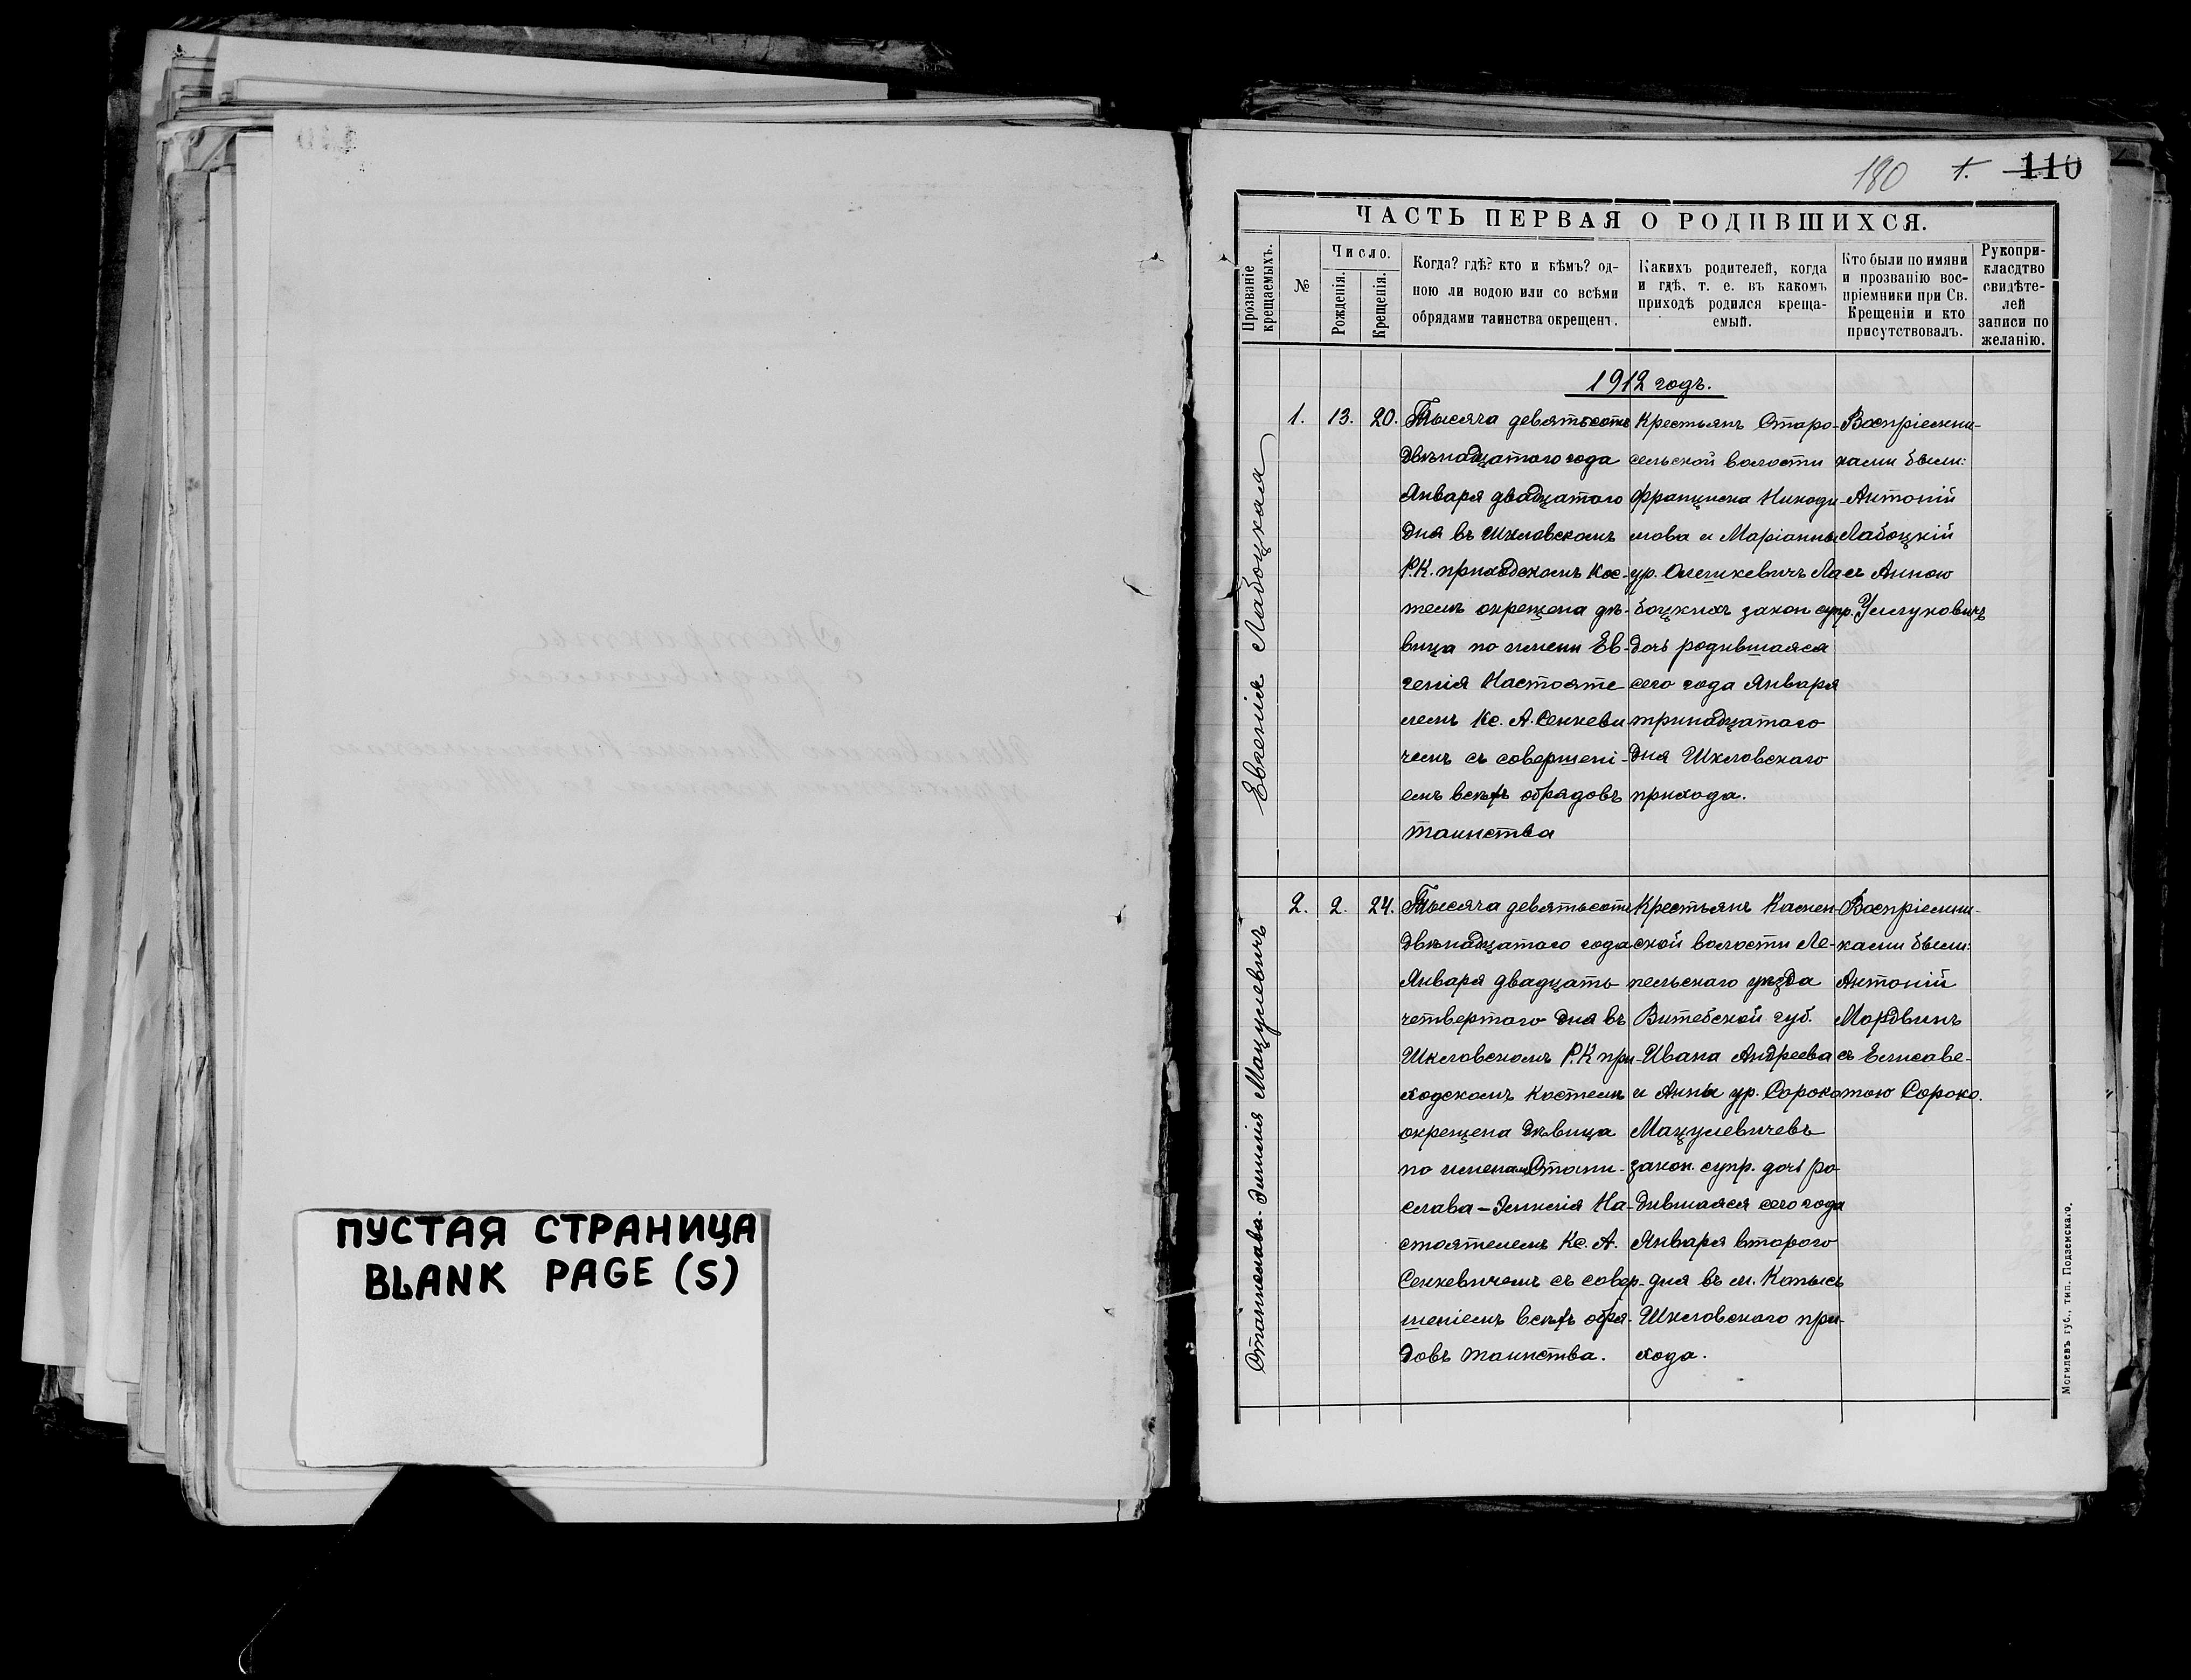 ПУСТАЯ СТРАНИЦА
BLANK PAGE (S)
180 1. 110
ЧАСТЬ ПЕРВАЯ О РОДИВШИХСЯ.
Прозваніе крещаемыхъ.
№
Число.
Рожденія.
Крещенія.
Когда? гдѣ? кто и кѣмъ? од-
ною ли водою или со всѣми
обрядами таинства окрещенъ.
Какихъ родителей, когда
и гдѣ, т. е. въ какомъ
приходѣ родился креща-
емый.
Кто были по имяни
и прозванію вос-
пріемники при Св.
Крещеніи и кто
присутствовалъ.
Рукопри-
класдтво
свидѣте-
лей
записи по
желанію.
1912 годъ.
Евгенія Лабоцкая
1. 13. 20.
Тысяча девятьсотъ
двѣнадцатого года
Января двадцатого
дня въ Шкловскомъ
Р.К. приходскомъ Кос-
телѣ окрещена дѣ-
вица по имени Ев-
генія Настояте
лемъ Кс. А. Сенкеви
чемъ съ совершені-
емъ всѣхъ обрядовъ
таинства
Крестьянъ Старо-
сельской волости
Франциска Никоди
мова и Маріанны
ур. Олешкевичъ Ла
боцкихъ закон супр.
дочь родившаяся
сего года Января
тринадцатаго
дня Шкловскаго
прихода.
Воспріемни-
ками были:
Антоній
Лабоцкій
съ Анною
Шкловского
2. 2. 24.
Станислава-Эмилія Мацулевичъ
Тысяча девятьсотъ
двѣнадцатаго года
Января двадцать
четвертаго дня въ
Шкловскомъ Р.К при-
ходскомъ Костелѣ
окрещена дѣвица
по именамъ Стани-
слава-Эмилія На-
стоятелемъ Кс. А.
Сенкевичемъ съ совер-
шеніемъ всѣхъ обря-
довъ таинства.
Крестьянъ Камен-
ской волости Ле-
пельскаго уѣзда
Витебской губ.
Ивана Андреева
и Анны ур. Сороко
Мацулевичевъ
закон. супр. дочь ро-
дившаяся сего года
Января второго
дня въ м. Копысь
Шкловскаго при-
хода.
Воспріемни-
ками были:
Антоній
Мордвинъ
съ Елисаве-
тою Сороко.
Могилевъ губ., тип. Подземскаго.